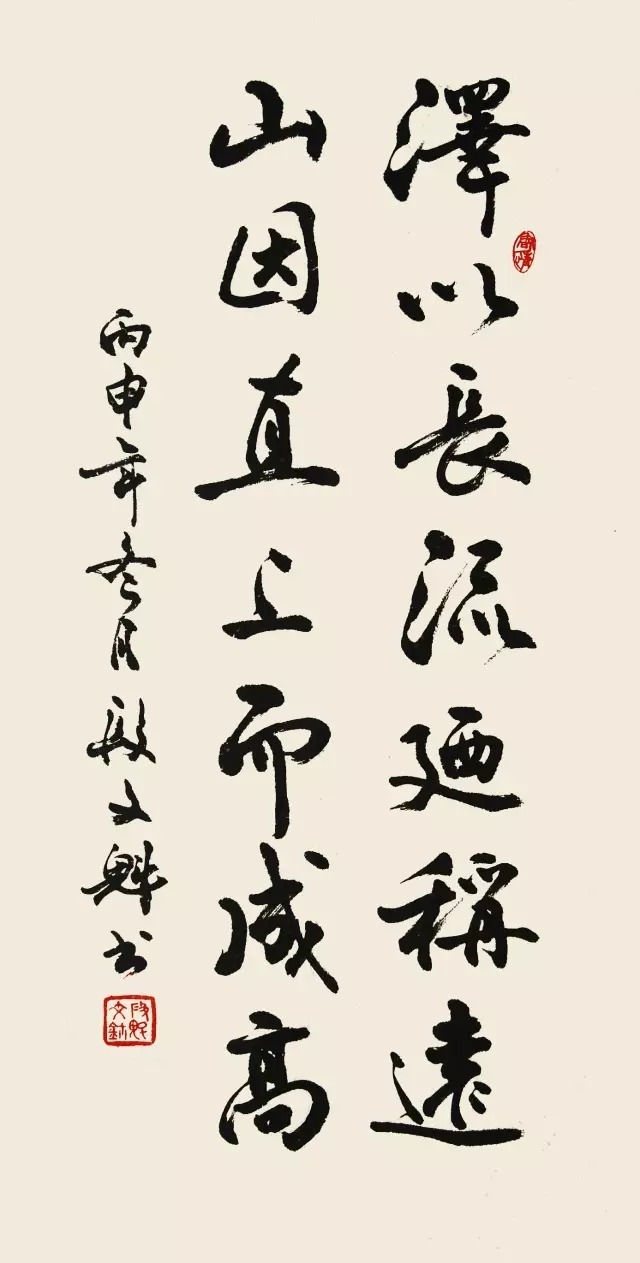 澤以長流廼稱遠
山因直上而成高
丙申年冬月段文魁书